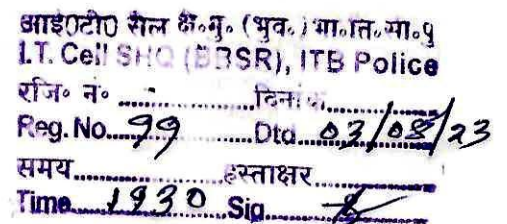 आई०टी० सैल क्षे०मु० (भुव०) भा०ति०सी०पु
I.T. Cell SHQ (BBSR), ITB Police
रजि० नं० ............ दिनांक............
Reg. No....99........Dtd...03/08/23
समय............हस्ताक्षर............
Time....1930...Sig